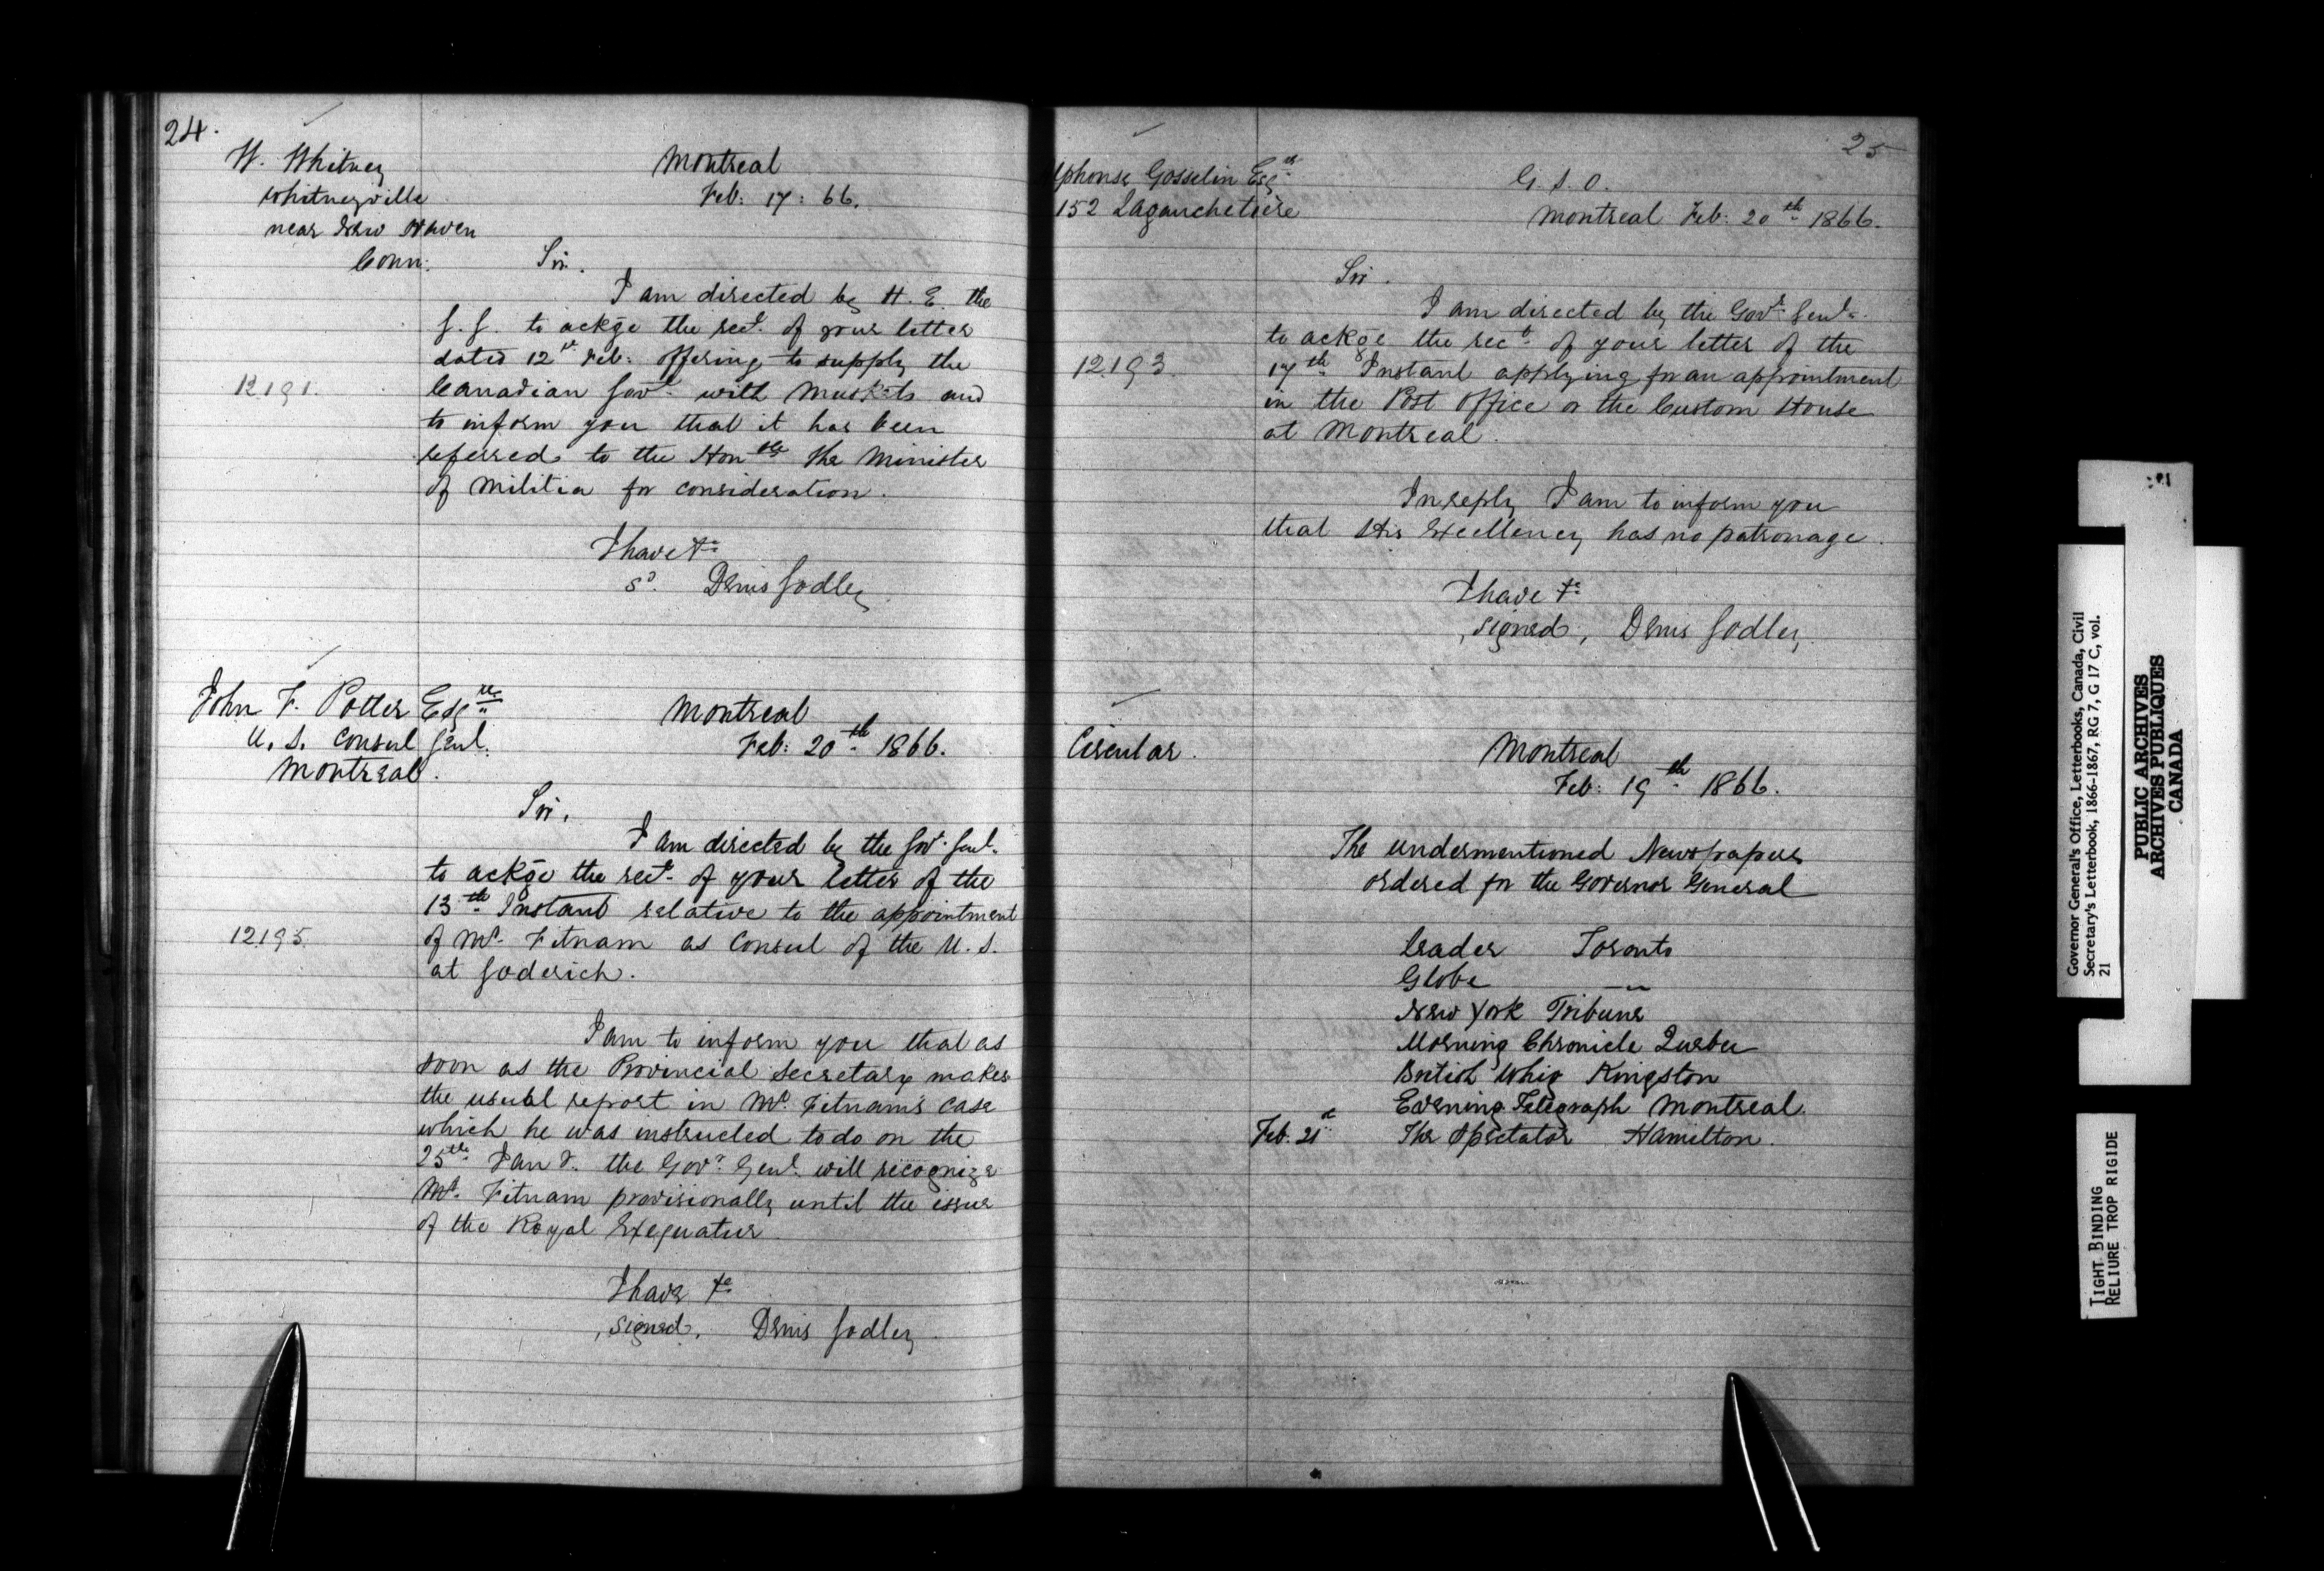 24.
W. Whitney
Whitneyville
near New Haven
Conn:
Montreal
Feb: 17: 66.
Sir.
I am directed by H. E. the
G. G. to ackge the rect. of your letter
dated 12th Feb: offering to supply the
12191.
Canadian Govt. with Muskets and
to inform you that it has been
referred to the Honble the Minister
of Militia for consideration.
I have &c
sd. Denis Godley
John F. Potter Esqre
U. S. Consul Genl.
Montreal.
Montreal
Feb: 20th 1866.
Sir,
I am directed by the Govr. Genl.
to ackge the rect. of your letter of the
13th Instant relative to the appointment
12195.
of Mr. Fitnam as Consul of the U. S.
at Goderich.
I am to inform you that as
soon as the Provincial Secretary makes
the usual report in Mr. Fitnam's case
which he was instructed to do on the
25th Jany. the Govr. Genl. will recognize
Mr. Fitnam provisionally until the issue
of the Royal Exequatur
I have &c
, signed, Denis Godley.
25
lphonse Gosselin Esqr
152 Lagauchetière
G. S. O.
Montreal Feb: 20th 1866.
Sir.
I am directed by the Govr. Genl.
to ackge the rect. of your letter of the
12193.
17th Instant applying for an appointment
in the Post Office or the Custom House
at Montreal.
In reply I am to inform you
that His Excellency has no patronage.
I have &c
, signed, Denis Godley.
Circular.
Montreal
Feb: 19th 1866.
The undermentioned Newspapers
ordered for the Governor General
Leader Toronto
Globe "
New York Tribune
Morning Chronicle Quebec
British Whig Kingston
Evening Telegraph Montreal.
Feb. 21st The Spectator Hamilton.
Governor General's Office, Letterbooks, Canada, Civil
Secretary's Letterbook, 1866-1867, RG 7, G 17 C, vol.
21
PUBLIC ARCHIVES
ARCHIVES PUBLIQUES
CANADA
TIGHT BINDING
RELIURE TROP RIGIDE